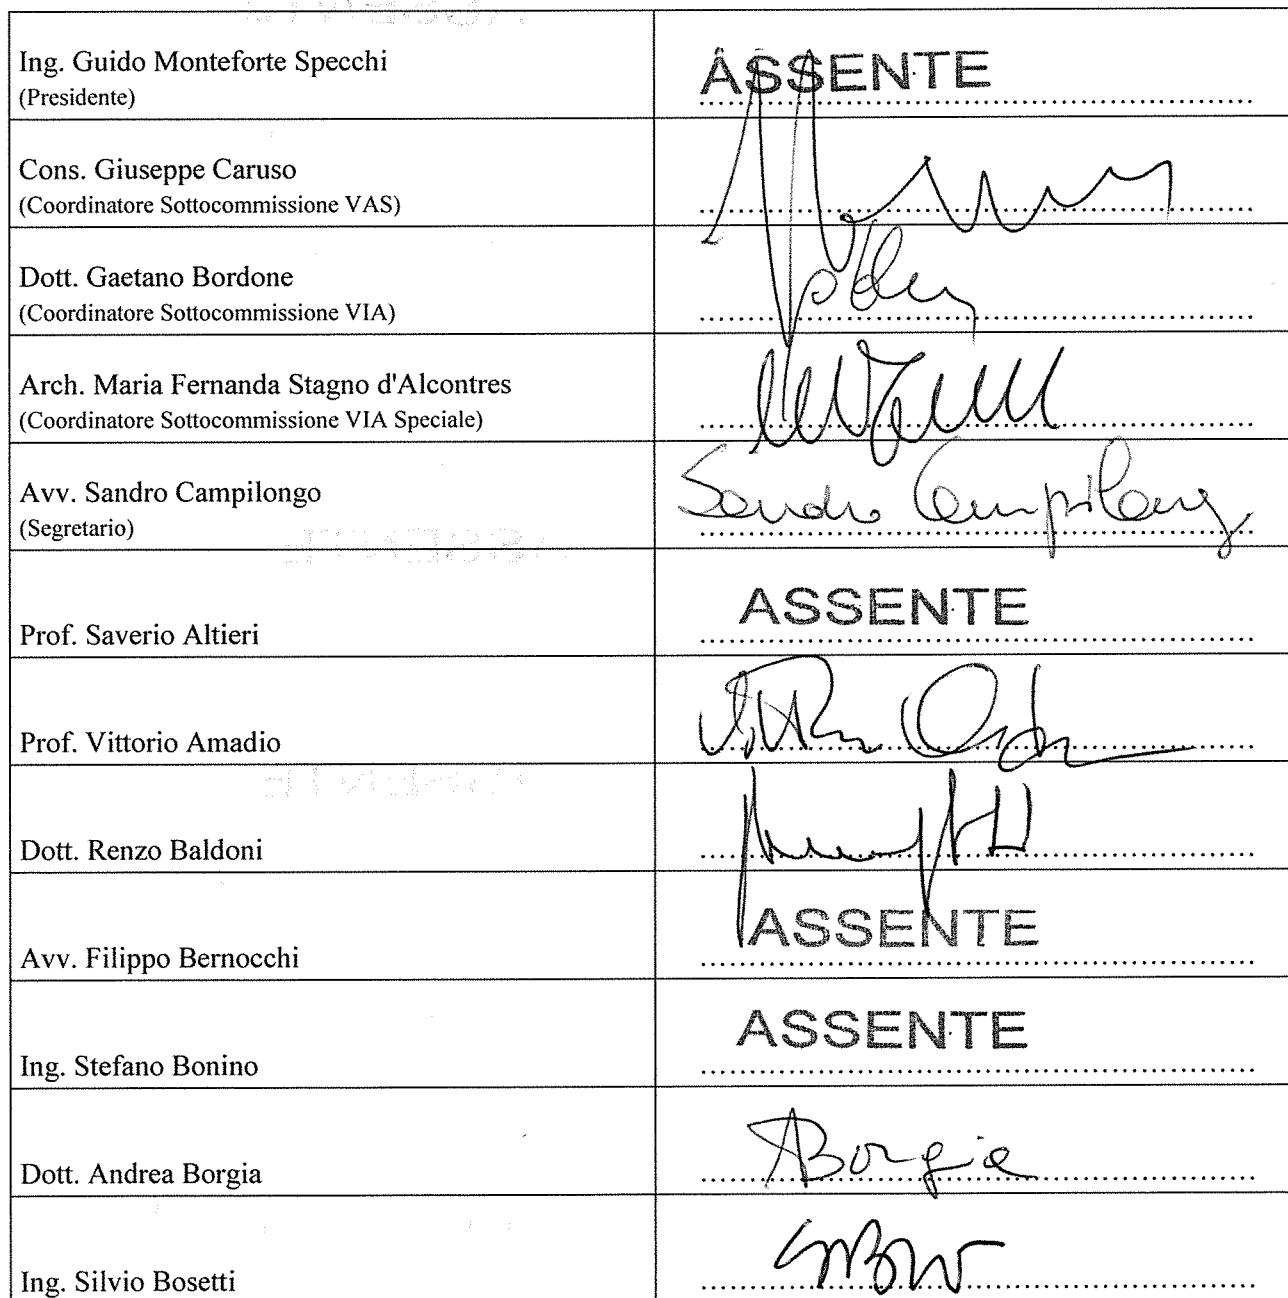 Ing. Guido Monteforte Specchi
(Presidente)
ASSENTE
Cons. Giuseppe Caruso
(Coordinatore Sottocommissione VAS)
Dott. Gaetano Bordone
(Coordinatore Sottocommissione VIA)
Arch. Maria Fernanda Stagno d'Alcontres
(Coordinatore Sottocommissione VIA Speciale)
Avv. Sandro Campilongo
(Segretario)
Sandro Campilongo
Prof. Saverio Altieri
ASSENTE
Prof. Vittorio Amadio
Dott. Renzo Baldoni
Avv. Filippo Bernocchi
ASSENTE
Ing. Stefano Bonino
ASSENTE
Dott. Andrea Borgia
ABorgia
Ing. Silvio Bosetti